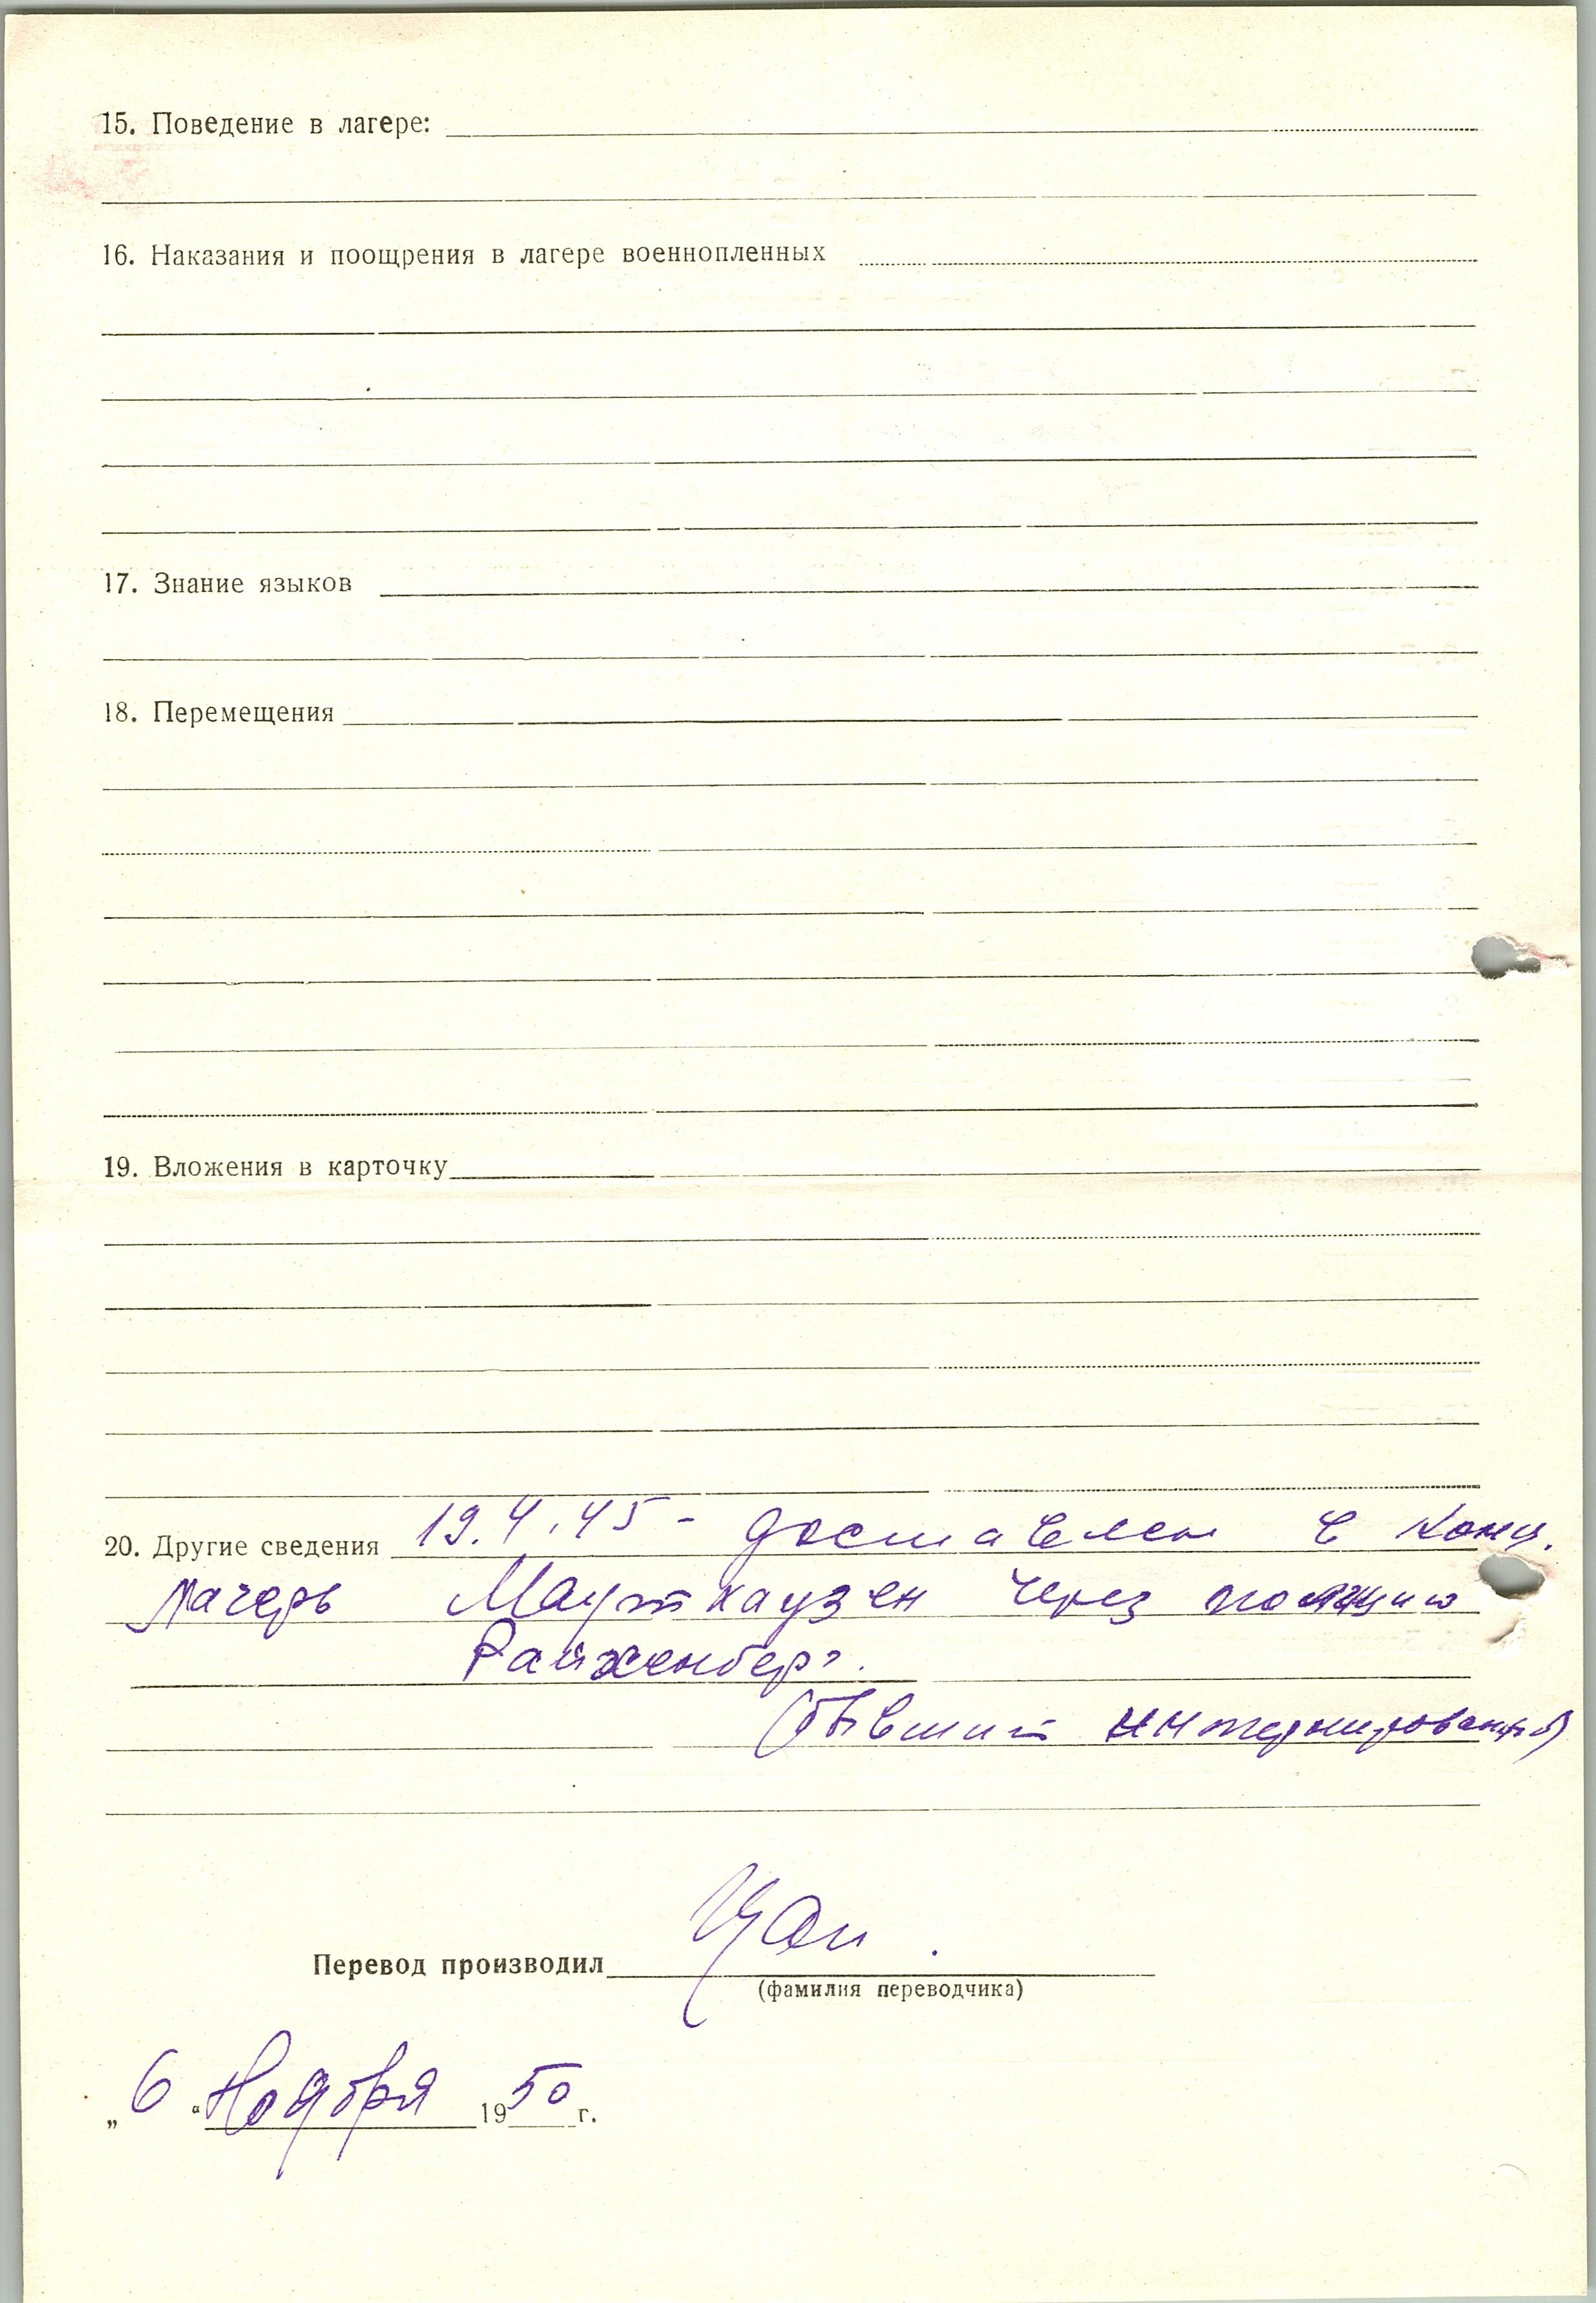 15. Поведение в лагере:
16. Наказания и поощрения в лагере военнопленных
17. Знание языков
18. Перемещения
19. Вложения в карточку
20. Другие сведения 19.4.45 - доставлен в конц.
лагерь Маутхаузен через полицию
Райхенберг.
(бывший интернированный)
Перевод производил
(фамилия переводчика)
„6“ Ноября 1950 г.